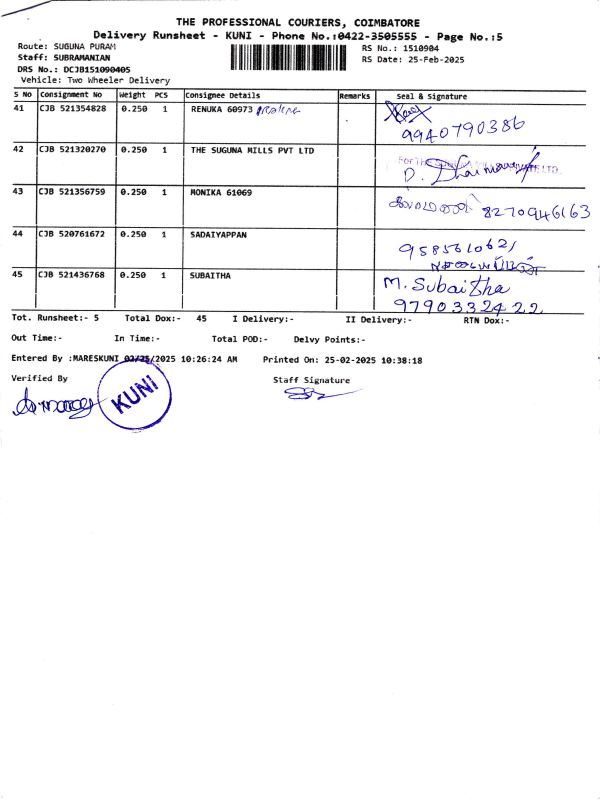 THE PROFESSIONAL COURIERS, COIMBATORE
Delivery Runsheet - KUNI - Phone No.:0422-3505555 - Page No.:5
Route: SUGUNA PURAM
RS No.: 1510904
Staff: SUBRAMANIAN
RS Date: 25-Feb-2025
DRS No.: DCJB151090405
Vehicle: Two Wheeler Delivery
S No Consignment No Weight PCS Consignee Details Remarks Seal & Signature
41 CJB 521354828 0.250 1 RENUKA 60973
9940790386
42 CJB 521320270 0.250 1 THE SUGUNA MILLS PVT LTD
43 CJB 521356759 0.250 1 MONIKA 61069
8270946163
44 CJB 520761672 0.250 1 SADAIYAPPAN
9585610621
45 CJB 521436768 0.250 1 SUBAITHA M. Subaitha
9790332422
Tot. Runsheet:- 5 Total Dox:- 45 I Delivery:- II Delivery:- RTN Dox:-
Out Time:- In Time:- Total POD:- Delvy Points:-
Entered By :MARESKUNI 02/25/2025 10:26:24 AM Printed On: 25-02-2025 10:38:18
Verified By Staff Signature
KUNI